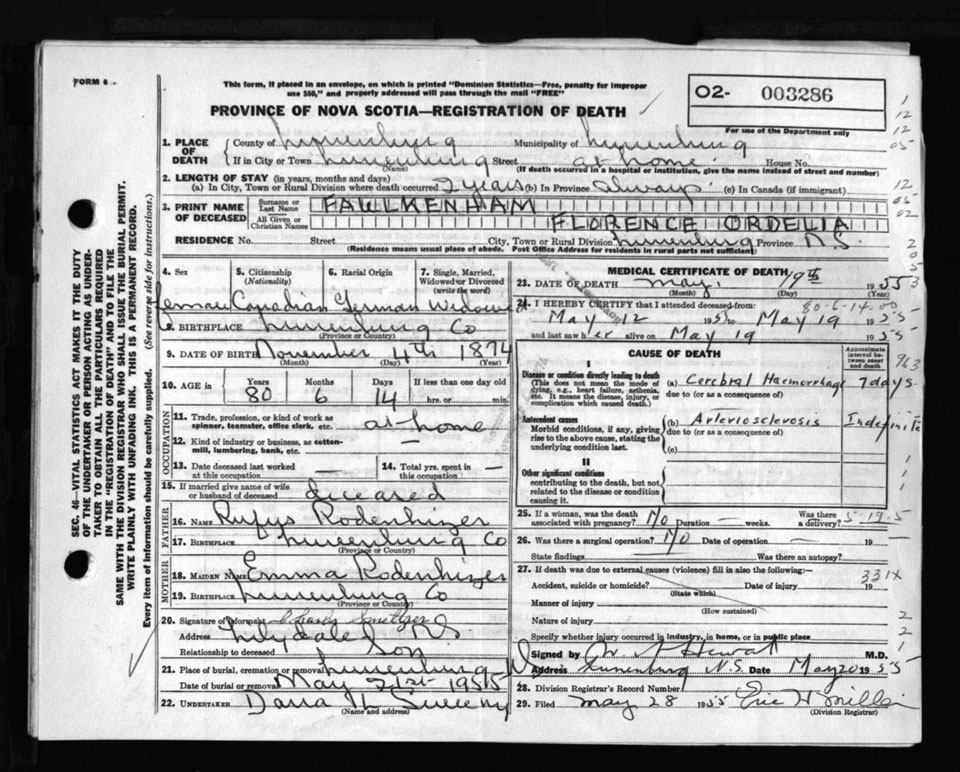 FORM 6
This form, if placed in an envelope, on which is printed "Dominion Statistics—Free, penalty for improper
use $50," and properly addressed will pass through the mail "FREE"
PROVINCE OF NOVA SCOTIA—REGISTRATION OF DEATH
02- 003286
For use of the Department only
1. PLACE OF DEATH
County of Lunenburg Municipality of Lunenburg
If in City or Town Lunenburg Street at home. House No.
(Name) (If death occurred in a hospital or institution, give the name instead of street and number)
2. LENGTH OF STAY (in years, months and days)
(a) In City, Town or Rural Division where death occurred 2 years (b) In Province always. (c) In Canada (if immigrant)
3. PRINT NAME OF DECEASED
Surname or Last Name FAULKENHAM
All Given or Christian Names FLORENCE ORDELIA
RESIDENCE No. Street City, Town or Rural Division Lunenburg Province N.S.
(Residence means usual place of abode. Post Office Address for residents in rural parts not sufficient)
4. Sex
5. Citizenship
(Nationality)
6. Racial Origin
7. Single, Married,
Widowed or Divorced
(write the word)
female Canadian German Widowed
8. BIRTHPLACE Lunenburg Co
(Province or Country)
9. DATE OF BIRTH November 4th 1874
(Month) (Day) (Year)
10. AGE in
Years Months Days If less than one day old
80 6 14 hrs. or min.
OCCUPATION
11. Trade, profession, or kind of work as
spinner, teamster, office clerk, etc. at home
12. Kind of industry or business, as cotton-
mill, lumbering, bank, etc. —
13. Date deceased last worked
at this occupation —
14. Total yrs. spent in
this occupation —
15. If married give name of wife
or husband of deceased deceased
FATHER
16. NAME Rufus Rodenhizer
17. BIRTHPLACE Lunenburg Co
(Province or Country)
MOTHER
18. MAIDEN NAME Emma Rodenhizer
19. BIRTHPLACE Lunenburg Co
(Province or Country)
20. Signature of informant Charles Smeltzer
Address Lilydale NS
Relationship to deceased Son
21. Place of burial, cremation or removal Lunenburg
Date of burial or removal May 21st 1955
22. UNDERTAKER Dana L Sweeny
(Name and address)
MEDICAL CERTIFICATE OF DEATH
23. DATE OF DEATH May. 19th 1955
(Month) (Day) (Year)
80-6-14-00
24. I HEREBY CERTIFY that I attended deceased from:
May 12 1955 to May 19 1955
and last saw her alive on May 19 1955
CAUSE OF DEATH
Approximate interval between onset and death
I
Disease or condition directly leading to death
(This does not mean the mode of
dying, e.g., heart failure, asthenia,
etc. It means the disease, injury, or
complication which caused death.)
(a) Cerebral Haemorrhage 7 days.
due to (or as a consequence of)
Antecedent causes
Morbid conditions, if any, giving
rise to the above cause, stating the
underlying condition last.
(b) Arteriosclerosis Indefinite
due to (or as a consequence of)
(c)
II
Other significant conditions
contributing to the death, but not
related to the disease or condition
causing it.
25. If a woman, was the death
associated with pregnancy? No Duration — weeks. Was there
a delivery?
5-19-5
26. Was there a surgical operation? No Date of operation — 19
State findings Was there an autopsy?
27. If death was due to external causes (violence) fill in also the following:—
331X
Accident, suicide or homicide? Date of injury 19
(State which)
Manner of injury
(How sustained)
Nature of injury
Specify whether injury occurred in industry, in home, or in public place
Signed by M.D.
Address Lunenburg N.S. Date May 20 1955
28. Division Registrar's Record Number
29. Filed May 28 1955 Eric H Miller
(Division Registrar)
SEC. 46—VITAL STATISTICS ACT MAKES IT THE DUTY
OF THE UNDERTAKER OR PERSON ACTING AS UNDER-
TAKER TO OBTAIN ALL THE PARTICULARS REQUIRED
IN THE "REGISTRATION OF DEATH" AND TO FILE THE
SAME WITH THE DIVISION REGISTRAR WHO SHALL ISSUE THE BURIAL PERMIT.
WRITE PLAINLY WITH UNFADING INK. THIS IS A PERMANENT RECORD.
Every item of Information should be carefully supplied. (See reverse side for instructions.)
1
12
12
05
12
05
02
2
0
5
3
963
1
1
1
2
2
1